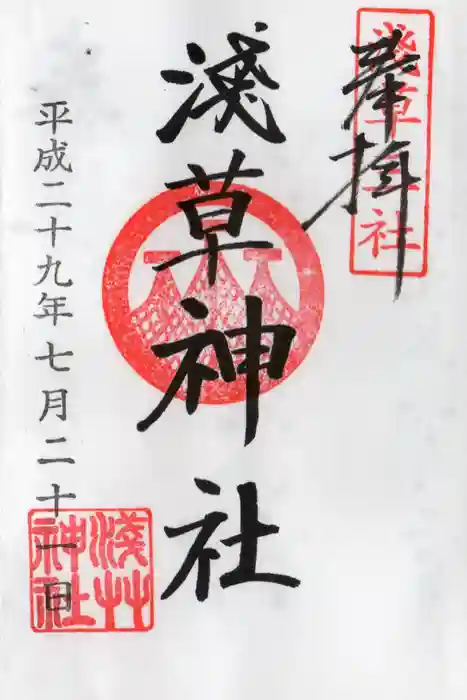 奉拝
淺草神社
淺草神社
平成二十九年七月二十一日
淺草神社